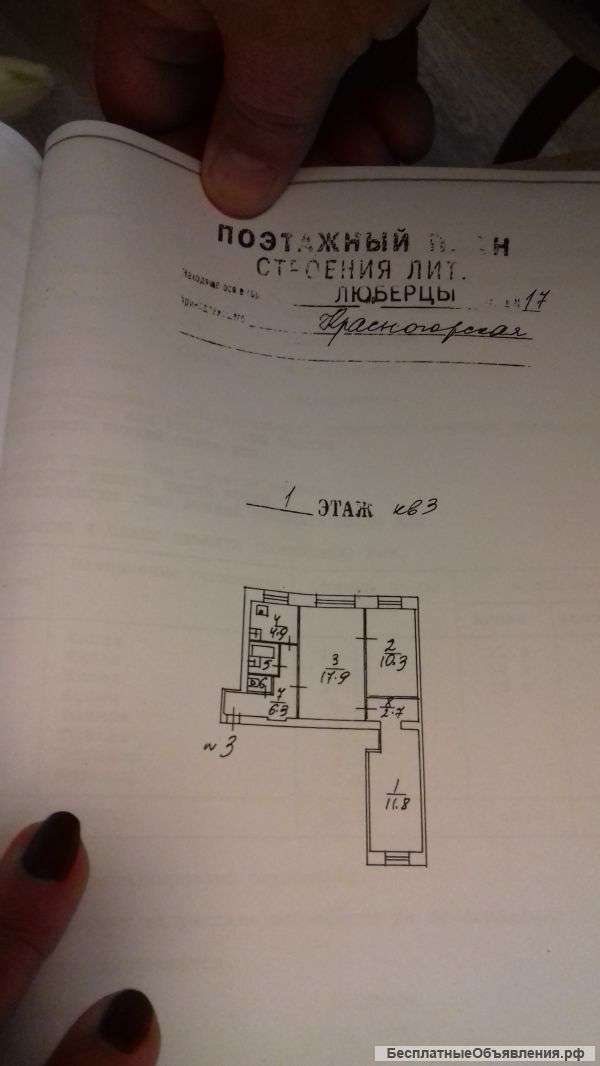 ПОЭТАЖНЫЙ
СТРОЕНИЯ ЛИТ.
ЛЮБЕРЦЫ 17
Красногорская
1 ЭТАЖ кв 3
4
4.9
5
6
7
6.3
3
17.9
2
10.3
8
2.7
1
11.8
№ 3
БесплатныеОбъявления.рф